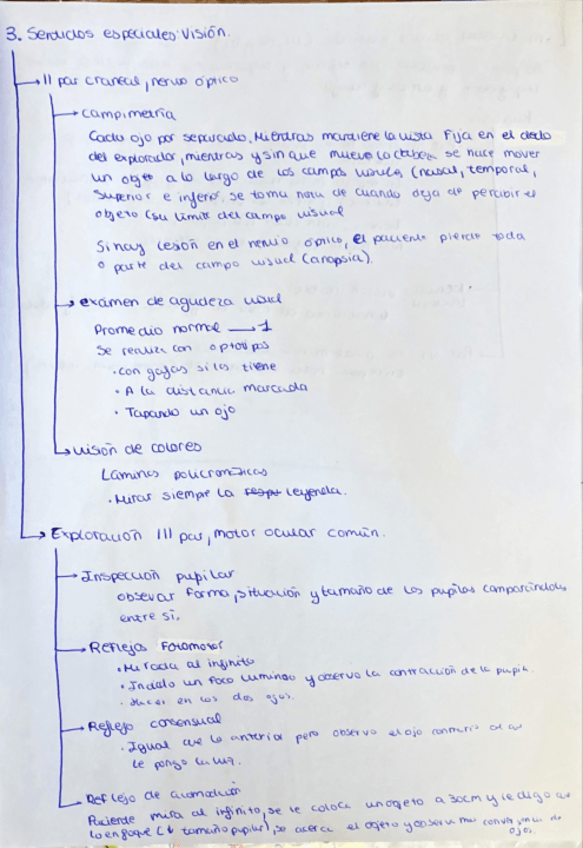 3. Sentidos especiales: Visión.
II par craneal, nervio óptico
campimetría
Cada ojo por separado. Mientras mantiene la vista fija en el dedo
del explorador, mientras y sin que mueva la cabeza se hace mover
un objeto a lo largo de los campos visuales (nasal, temporal,
superior e inferior, se toma nota de cuando deja de percibir el
objeto (su límite del campo visual
Si hay lesión en el nervio óptico, el paciente pierde toda
o parte del campo visual (anopsia).
exámen de agudeza visual
Promedio normal → 1
Se realiza con optotipos
· con gafas si las tiene
· A la distancia marcada
· Tapando un ojo
visión de colores
Láminas policromáticas
· Mirar siempre la leyenda.
Exploración III par, motor ocular común.
Inspección pupilar
observar forma, situación y tamaño de las pupilas comparándolas
entre sí.
Reflejos Fotomotor
· Mirada al infinito
· Incido un foco luminoso y observo la contracción de la pupila.
· Hacer en los dos ojos.
Reflejo consensual
· Igual que lo anterior pero observo el ojo contrario al que
le pongo la luz.
Reflejo de acomodación
Paciente mira al infinito, se le coloca un objeto a 30cm y le digo que
lo enfoque (↓ tamaño pupilar), se acerca el objeto y observamos convergencia de
ojos.